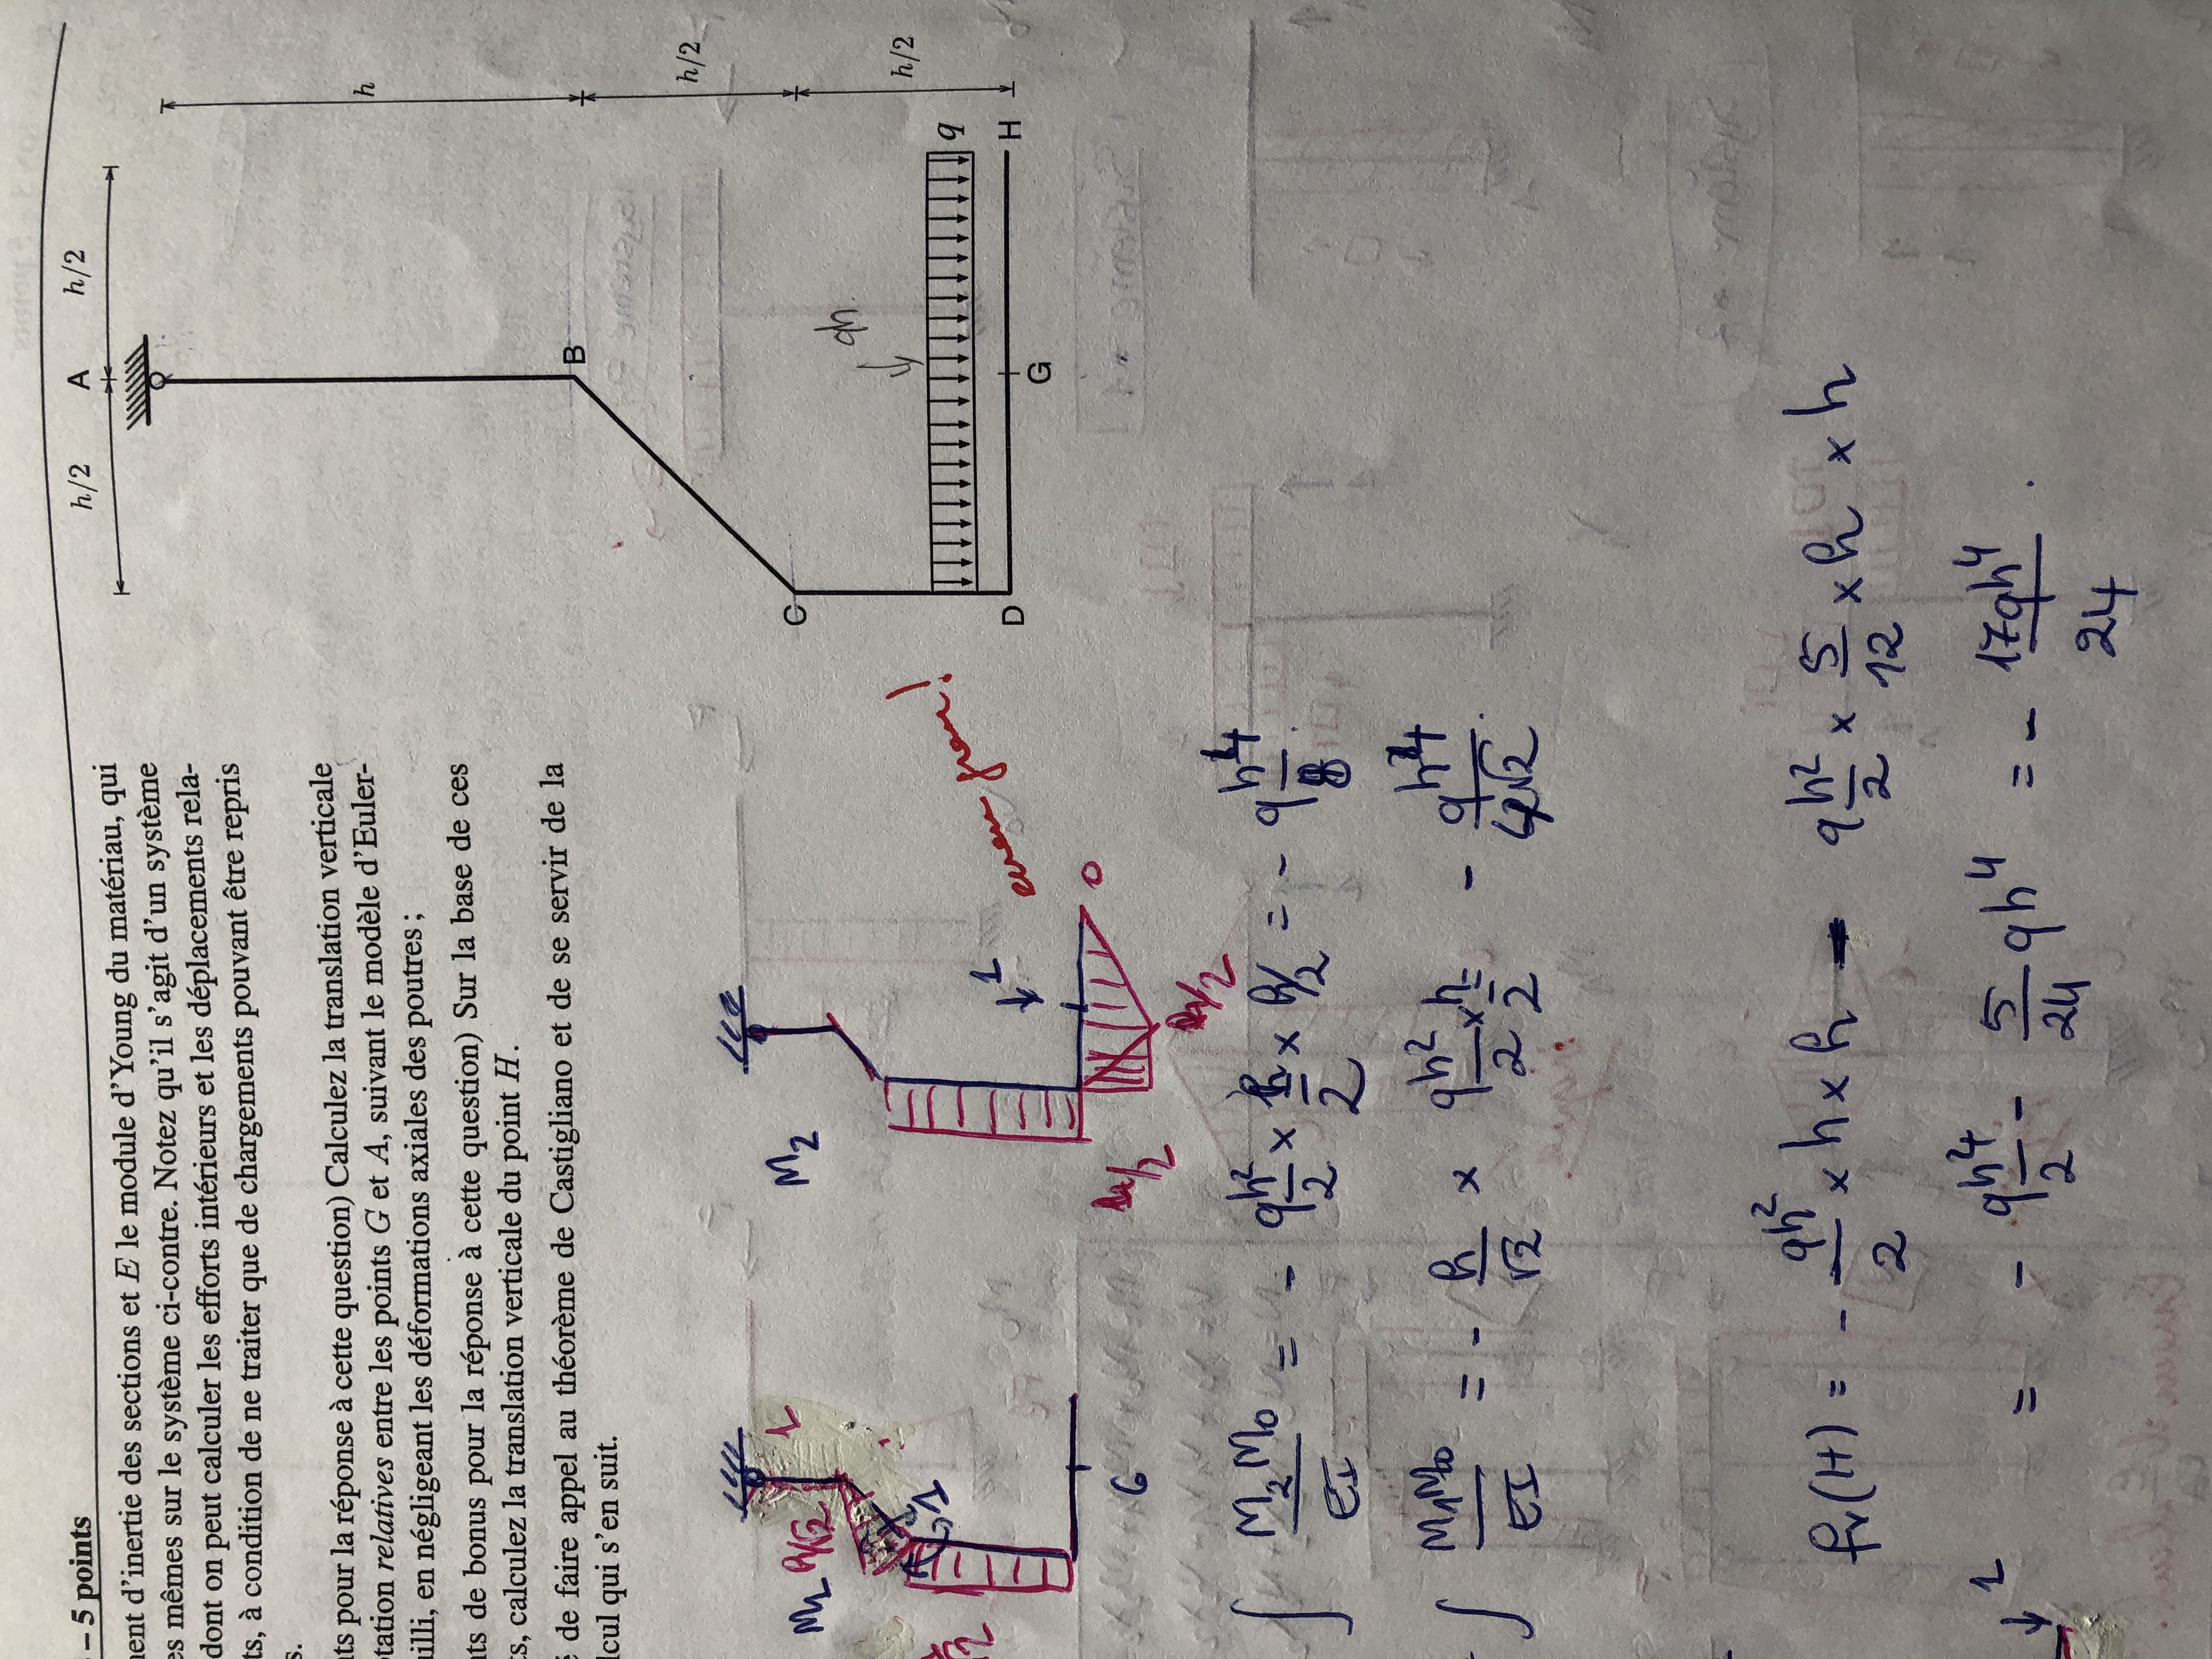 – 5 points
ment d'inertie des sections et E le module d'Young du matériau, qui
es mêmes sur le système ci-contre. Notez qu'il s'agit d'un système
dont on peut calculer les efforts intérieurs et les déplacements rela-
ts, à condition de ne traiter que de chargements pouvant être repris
s.
nts pour la réponse à cette question) Calculez la translation verticale
otation relatives entre les points G et A, suivant le modèle d'Euler-
uilli, en négligeant les déformations axiales des poutres ;
nts de bonus pour la réponse à cette question) Sur la base de ces
ts, calculez la translation verticale du point H.
de faire appel au théorème de Castigliano et de se servir de la
lcul qui s'en suit.
h/2 A h/2
h
B
h/2
C
h/2
qh
q
D G H
M1
h/√2
1
G
M2
1
h/2
h/2
0
∫ M2M0/EI = - qh²/2 × h/2 × h/2 = - qh⁴/8
∫ M1M0/EI = - h/√2 × qh²/2 × h/2 - qh⁴/4√2
fv(H) = - qh²/2 × h × h - qh²/2 × 5/12 × h × h
= - qh⁴/2 - 5/24 qh⁴ = - 17qh⁴/24.
1